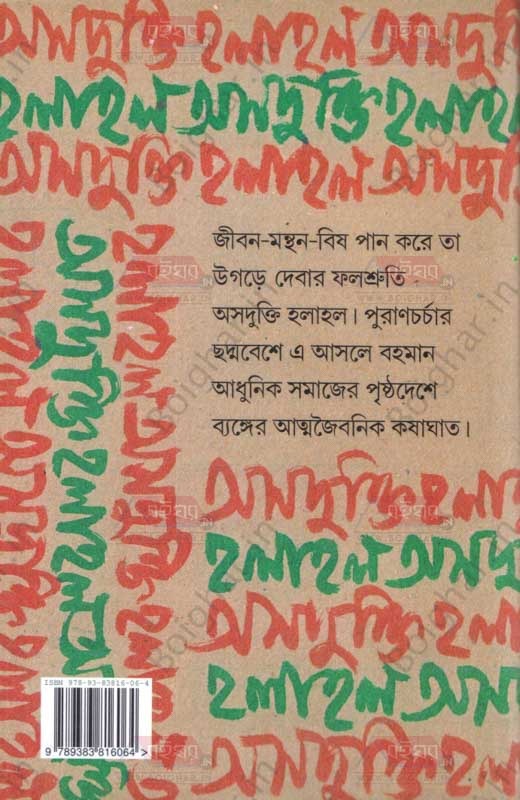 অসদুক্তি হলাহল অসদুক্তি
হলাহল অসদুক্তি হলাহল
অসদুক্তি হলাহল অসদুক্তি
জীবন-মন্থন-বিষ পান করে তা
উগড়ে দেবার ফলশ্রুতি
অসদুক্তি হলাহল। পুরাণচর্চার
ছদ্মবেশে এ আসলে বহমান
আধুনিক সমাজের পৃষ্ঠদেশে
ব্যঙ্গের আত্মজৈবনিক কষাঘাত।
হলাহল অসদুক্তি
অসদুক্তি হলাহল
অসদুক্তি হলা
হলাহল অসদু
অসদুক্তি হলা
হলাহল অস
অসদুক্তি হল
ISBN 978-93-83816-06-4
9 789383 816064 >
বইঘর.IN
Boighar.in